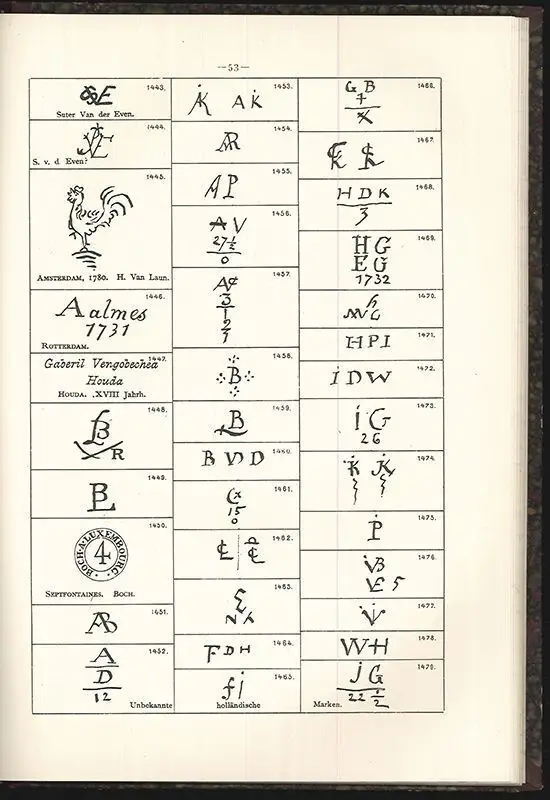 —53—
1443.
SE
Suter Van der Even.
1444.
S. v. d Even?
1445.
AMSTERDAM, 1780. H. Van Laun.
1446.
Aalmes
1731
ROTTERDAM.
1447.
Gaberil Vengobechea
Houda
HOUDA. XVIII Jahrh.
1448.
LB
R
1449.
BL
1450.
BOCH·A·LUXEMBOURG·
4
SEPTFONTAINES. BOCH.
1451.
AB
1452.
A
D
12
Unbekannte
1453.
AK AK
1454.
AR
1455.
AP
1456.
A V
27½
0
1457.
3
1
2
7
1458.
B
1459.
B
1460.
B VD D
1461.
15
0
1462.
1463.
1464.
F D H
1465.
fi
holländische
1466.
G B
7
1467.
1468.
H D K
3
1469.
HG
EG
1732
1470.
1471.
HPI
1472.
i D W
1473.
i G
26
1474.
K K
1475.
P
1476.
VB
VE 5
1477.
1478.
WH
1479.
j G
22 i/2
Marken.